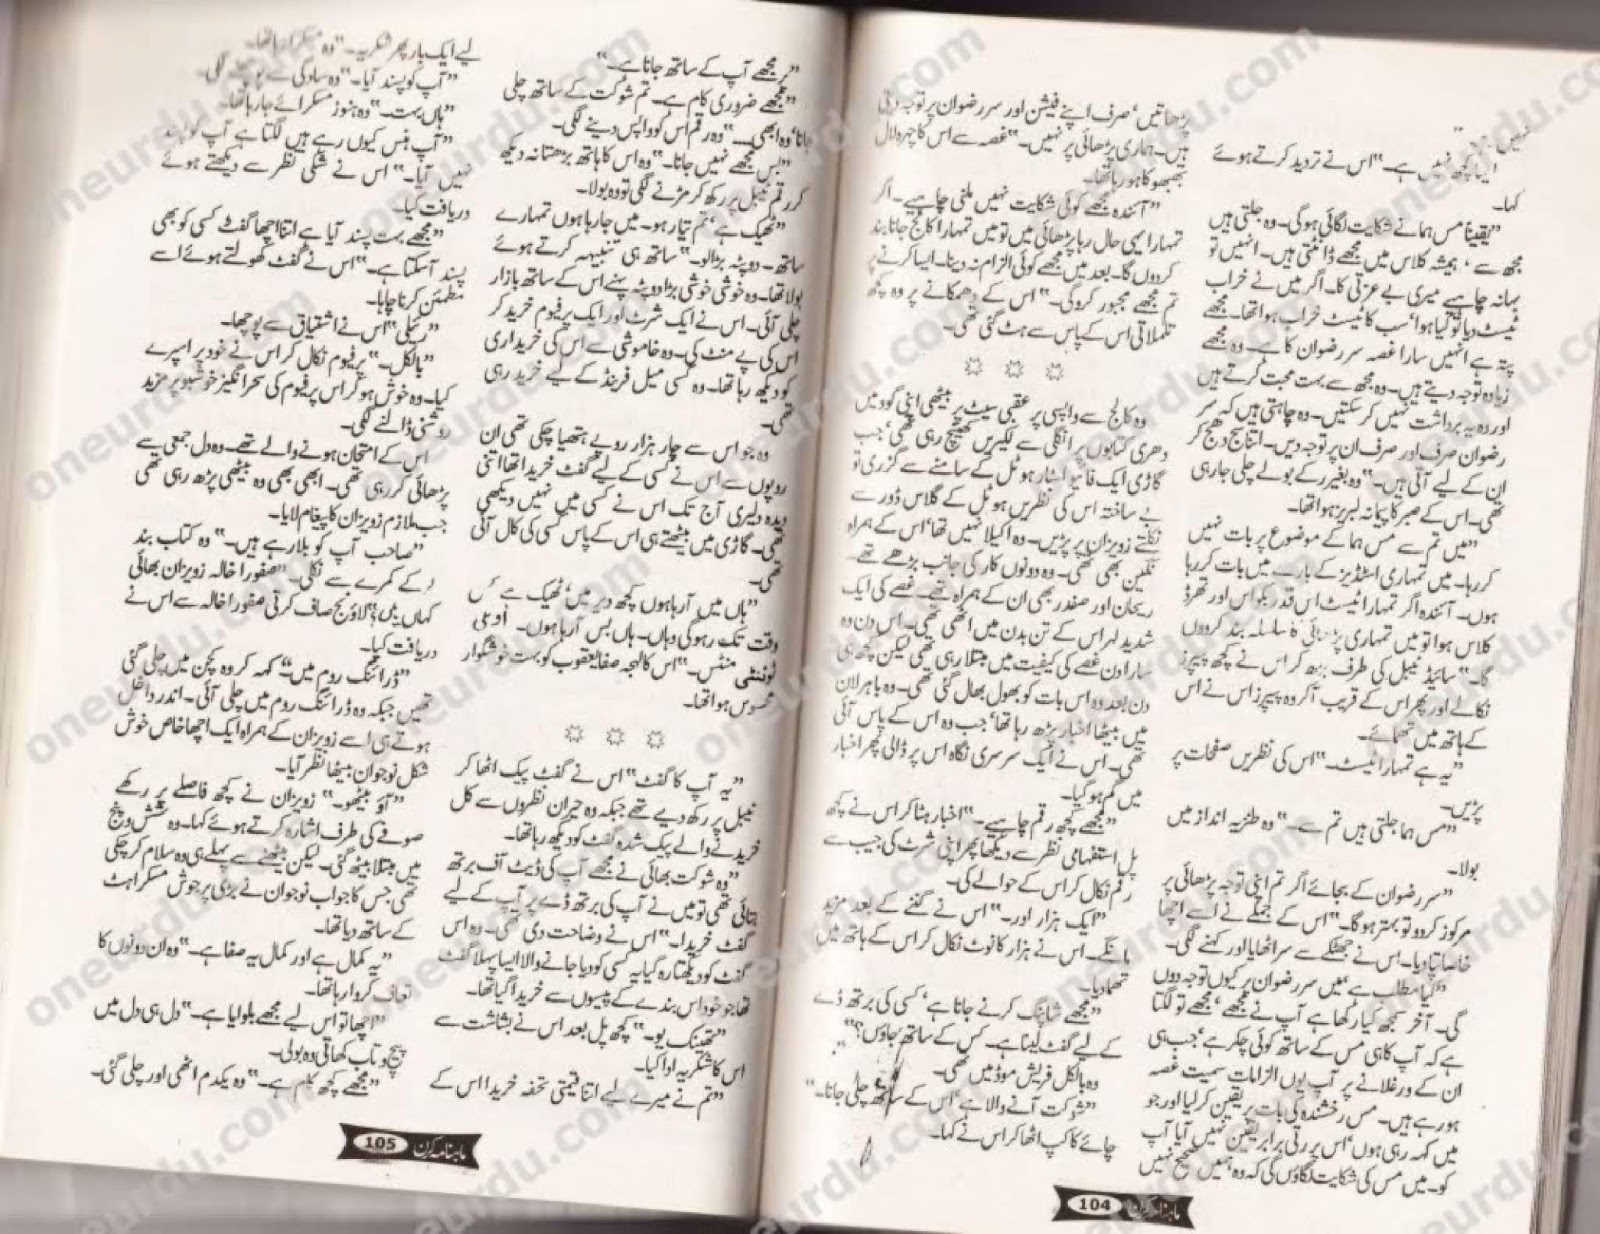 ایسا کچھ نہیں ہے۔" اس نے تردید کرتے ہوئے
کہا۔
"یقینا" مس ہما نے شکایت لگائی ہوگی۔ وہ جلتی ہیں
مجھ سے، ہمیشہ کلاس میں مجھے ڈانٹتی ہیں۔ انہیں تو
بہانہ چاہیے میری بے عزتی کا۔ اگر میں نے خراب
ٹیسٹ دیا تو کیا ہوا، سب کا ٹیسٹ خراب ہوا تھا۔ مجھے
پتہ ہے انہیں سارا غصہ سر رضوان کا ہے۔ وہ مجھے
زیادہ توجہ دیتے ہیں۔ وہ مجھ سے بہت محبت کرتے ہیں
اور وہ یہ برداشت نہیں کرسکتیں۔ وہ چاہتی ہیں کہ سر
رضوان صرف اور صرف ان پر توجہ دیں۔ اتنا سج دھج کر
ان کے لیے آتی ہیں۔" وہ بغیر رکے بولے چلی جارہی
تھی۔ اس کے صبر کا پیمانہ لبریز ہوا تھا۔
"میں تم سے مس ہما کے موضوع پر بات نہیں
کررہا۔ میں تمہاری اسٹڈیز کے بارے میں بات کررہا
ہوں۔ آئندہ اگر تمہارا ٹیسٹ اس قدر بکواس اور تھرڈ
کلاس ہوا تو میں تمہاری پڑھائی کا سلسلہ بند کردوں
گا۔" سائیڈ ٹیبل کی طرف بڑھ کر اس نے کچھ پیپرز
نکالے اور پھر اس کے قریب آکر وہ پیپرز اس نے اس
کے ہاتھ میں تھمائے۔
"یہ ہے تمہارا ٹیسٹ۔" اس کی نظریں صفحات پر
پڑیں۔
"مس ہما جلتی ہیں تم سے۔" وہ طنزیہ انداز میں
بولا۔
"سر رضوان کے بجائے اگر تم اپنی توجہ پڑھائی پر
مرکوز کردو تو بہتر ہوگا۔" اس کے جملے نے اسے اچھا
خاصا تپا دیا۔ اس نے جھٹکے سے سر اٹھایا اور کہنے لگی۔
"کیا مطلب ہے، میں سر رضوان پر کیوں توجہ دوں
گی۔ آخر سمجھ کیا رکھا ہے آپ نے مجھے، مجھے تو لگتا
ہے کہ آپ کا ہی مس کے ساتھ کوئی چکر ہے، جب ہی
ان کے ورغلانے پر آپ یوں الزامات سمیت غصہ
ہورہے ہیں۔ مس رخشندہ کی بات پر یقین کرلیا اور جو
میں کہہ رہی ہوں، اس پر رتی برابر یقین نہیں آیا آپ
کو۔ میں مس کی شکایت لگاؤں گی کہ وہ ہمیں صحیح نہیں
پڑھاتیں، صرف اپنے فیشن اور سر رضوان پر توجہ دیتی
ہیں۔ ہماری پڑھائی پر نہیں۔" غصہ سے اس کا چہرہ لال
بھبھوکا ہورہا تھا۔
"آئندہ مجھے کوئی شکایت نہیں ملنی چاہیے۔ اگر
تمہارا یہی حال رہا پڑھائی میں تو میں تمہارا کالج جانا بند
کردوں گا۔ بعد میں مجھے کوئی الزام نہ دینا۔ ایسا کرنے پر
تم مجھے مجبور کروگی۔" اس کے دھمکانے پر وہ کچھ
تلملاتی اس کے پاس سے ہٹ گئی تھی۔
وہ کالج سے واپسی پر عقبی سیٹ پر بیٹھی اپنی گود میں
دھری کتابوں پر انگلی سے لکیریں کھینچ رہی تھی، جب
گاڑی ایک فائیو اسٹار ہوٹل کے سامنے سے گزری تو
بے ساختہ اس کی نظریں ہوٹل کے گلاس ڈور سے
نکلتے زوہیزان پر پڑیں۔ وہ اکیلا نہیں تھا، اس کے ہمراہ
نگین بھی تھی۔ وہ دونوں کار کی جانب بڑھے تھے۔
ریحان اور صفدر بھی ان کے ہمراہ تھے۔ غصے کی ایک
شدید لہر اس کے تن بدن میں اٹھی تھی۔ اس دن وہ
سارا دن غصے کی کیفیت میں مبتلا رہی تھی لیکن کچھ ہی
دن بعد وہ اس بات کو بھول بھال گئی تھی۔ وہ باہر لان
میں بیٹھا اخبار پڑھ رہا تھا، جب وہ اس کے پاس آئی
تھی۔ اس نے ایک سرسری نگاہ اس پر ڈالی پھر اخبار
میں گم ہوگیا۔
"مجھے کچھ رقم چاہیے۔" اخبار ہٹا کر اس نے کچھ
پل استفہامی نظر سے دیکھا پھر اپنی شرٹ کی جیب سے
رقم نکال کر اس کے حوالے کی۔
"ایک ہزار اور۔" اس نے گننے کے بعد مزید
مانگے۔ اس نے ہزار کا نوٹ نکال کر اس کے ہاتھ میں
تھما دیا۔
"مجھے شاپنگ کرنے جانا ہے، کسی کی برتھ ڈے
کے لیے گفٹ لینا ہے۔ کس کے ساتھ جاؤں؟"
وہ بالکل فریش موڈ میں تھی۔
"شوکت آنے والا ہے، اس کے ساتھ چلی جانا۔"
چائے کا کپ اٹھا کر اس نے کہا۔
ماہنامہ کرن 104
"مجھے آپ کے ساتھ جانا ہے۔"
"مجھے ضروری کام ہے۔ تم شوکت کے ساتھ چلی
جانا، وہ ابھی۔۔۔" وہ رقم اس کو واپس دینے لگی۔
"بس مجھے نہیں جانا۔" وہ اس کا ہاتھ بڑھتا نہ دیکھ
کر رقم ٹیبل پر رکھ کر مڑنے لگی تو وہ بولا۔
"ٹھیک ہے، تم تیار ہو۔ میں جارہا ہوں تمہارے
ساتھ۔ دوپٹہ بڑا لو۔" ساتھ ہی تنبیہہ کرتے ہوئے
بولا تھا۔ وہ خوشی خوشی بڑا دوپٹہ پہنے اس کے ساتھ بازار
چلی آئی۔ اس نے ایک شرٹ اور ایک پرفیوم خرید کر
اس کی پے منٹ کی۔ وہ خاموشی سے اس کی خریداری
کو دیکھ رہا تھا۔ وہ کسی میل فرینڈ کے لیے خرید رہی
تھی۔
وہ جو اس سے چار ہزار روپے ہتھیا چکی تھی ان
روپوں سے اس نے کسی کے لیے گفٹ خریدا تھا اتنی
دیدہ دلیری آج تک اس نے کسی میں نہیں دیکھی
تھی۔ گاڑی میں بیٹھتے ہی اس کے پاس کسی کی کال آئی
تھی۔
"ہاں میں آرہا ہوں کچھ دیر میں، ٹھیک ہے
وقت تک رہوگی وہاں۔ ہاں بس آرہا ہوں۔ اونلی
ٹوئنٹی منٹس۔" اس کا لہجہ صفا یعقوب کو بہت خوشگوار
محسوس ہوا تھا۔
"یہ آپ کا گفٹ" اس نے گفٹ پیک اٹھا کر
ٹیبل پر رکھ دیے تھے جبکہ وہ حیران نظروں سے کل
خریدنے والے پیک شدہ گفٹ کو دیکھ رہا تھا۔
"وہ شوکت بھائی نے مجھے آپ کی ڈیٹ آف برتھ
بتائی تھی تو میں نے آپ کی برتھ ڈے پر آپ کے لیے
گفٹ خریدا۔" اس نے وضاحت دی تھی۔ وہ اس
گفٹ کو دیکھتا رہ گیا یہ کسی کو دیا جانے والا ایسا پہلا گفٹ
تھا جو خود اس بندے کے پیسوں سے خریدا گیا تھا۔
"تھینک یو۔" کچھ پل بعد اس نے بشاشت سے
اس کا شکریہ ادا کیا۔
"تم نے میرے لیے اتنا قیمتی تحفہ خریدا اس کے
لیے ایک بار پھر شکریہ۔" وہ مسکرا رہا تھا۔
"آپ کو پسند آیا۔" وہ سادگی سے پوچھنے لگی۔
"ہاں بہت۔" وہ ہنوز مسکرائے جارہا تھا۔
"آپ ہنس کیوں رہے ہیں لگتا ہے آپ کو پسند
نہیں آیا۔" اس نے شکی نظر سے دیکھتے ہوئے
دریافت کیا۔
"مجھے بہت پسند آیا ہے اتنا اچھا گفٹ کسی کو بھی
پسند آسکتا ہے۔" اس نے گفٹ کھولتے ہوئے اسے
مطمئن کرنا چاہا۔
"رئیلی" اس نے اشتیاق سے پوچھا۔
"بالکل۔" پرفیوم نکال کر اس نے خود پر اسپرے
کیا۔ وہ خوش ہوکر اس پرفیوم کی سحر انگیز خوشبو پر مزید
روشنی ڈالنے لگی۔
اس کے امتحان ہونے والے تھے۔ وہ دل جمعی سے
پڑھائی کررہی تھی۔ ابھی بھی وہ بیٹھی پڑھ رہی تھی
جب ملازم زوہیزان کا پیغام لایا۔
"صاحب آپ کو بلا رہے ہیں۔" وہ کتاب بند
کرکے کمرے سے نکلی۔ "صفورا خالہ زوہیزان بھائی
کہاں ہیں؟" لاؤنج صاف کرتی صفورا خالہ سے اس نے
دریافت کیا۔
"ڈرائنگ روم میں" کہہ کر وہ کچن میں چلی گئی
تھیں جبکہ وہ ڈرائنگ روم میں چلی آئی۔ اندر داخل
ہوتے ہی اسے زوہیزان کے ہمراہ ایک اچھا خاص خوش
شکل نوجوان بیٹھا نظر آیا۔
"آؤ بیٹھو۔" زوہیزان نے کچھ فاصلے پر رکھے
صوفے کی طرف اشارہ کرتے ہوئے کہا۔ وہ شش و پنج
میں مبتلا بیٹھ گئی۔ لیکن بیٹھنے سے پہلے ہی وہ سلام کرچکی
تھی جس کا جواب نوجوان نے بڑی پرجوش مسکراہٹ
کے ساتھ دیا تھا۔
"یہ کمال ہے اور کمال یہ صفا ہے۔" وہ ان دونوں کا
تعارف کروا رہا تھا۔
"اچھا تو اس لیے مجھے بلوایا ہے۔" دل ہی دل میں
پیچ و تاب کھاتی وہ بولی۔
"مجھے کچھ کام ہے۔" وہ یکدم اٹھی اور چلی گئی۔
ماہنامہ کرن 105
oneurdu.com